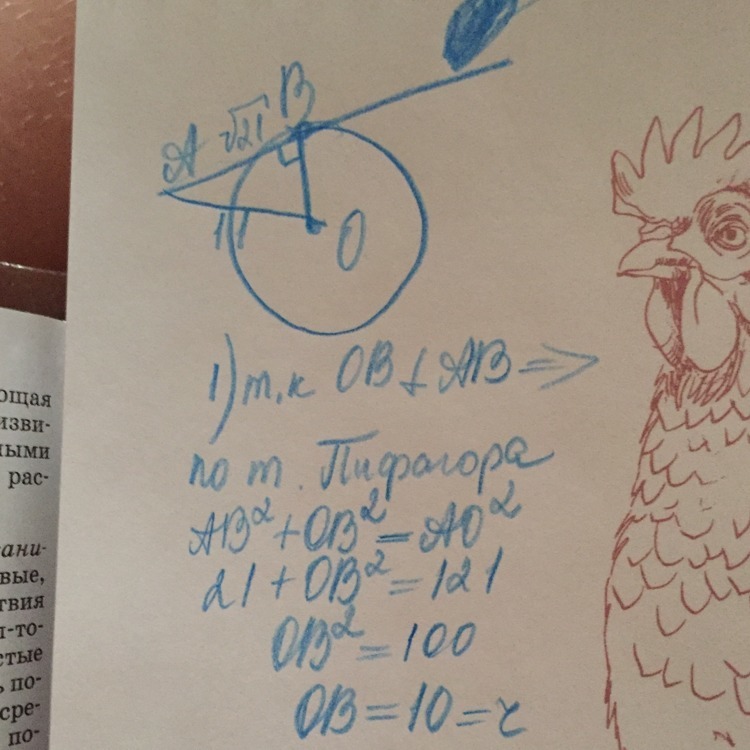 A √21 B
11
O
1) т.к OB ⊥ AB =>
по т. Пифагора
AB² + OB² = AO²
21 + OB² = 121
OB² = 100
OB = 10 = r
ющая
изви-
ными
рас-
ани-
вые,
твия
стые
по-
сре-
по-